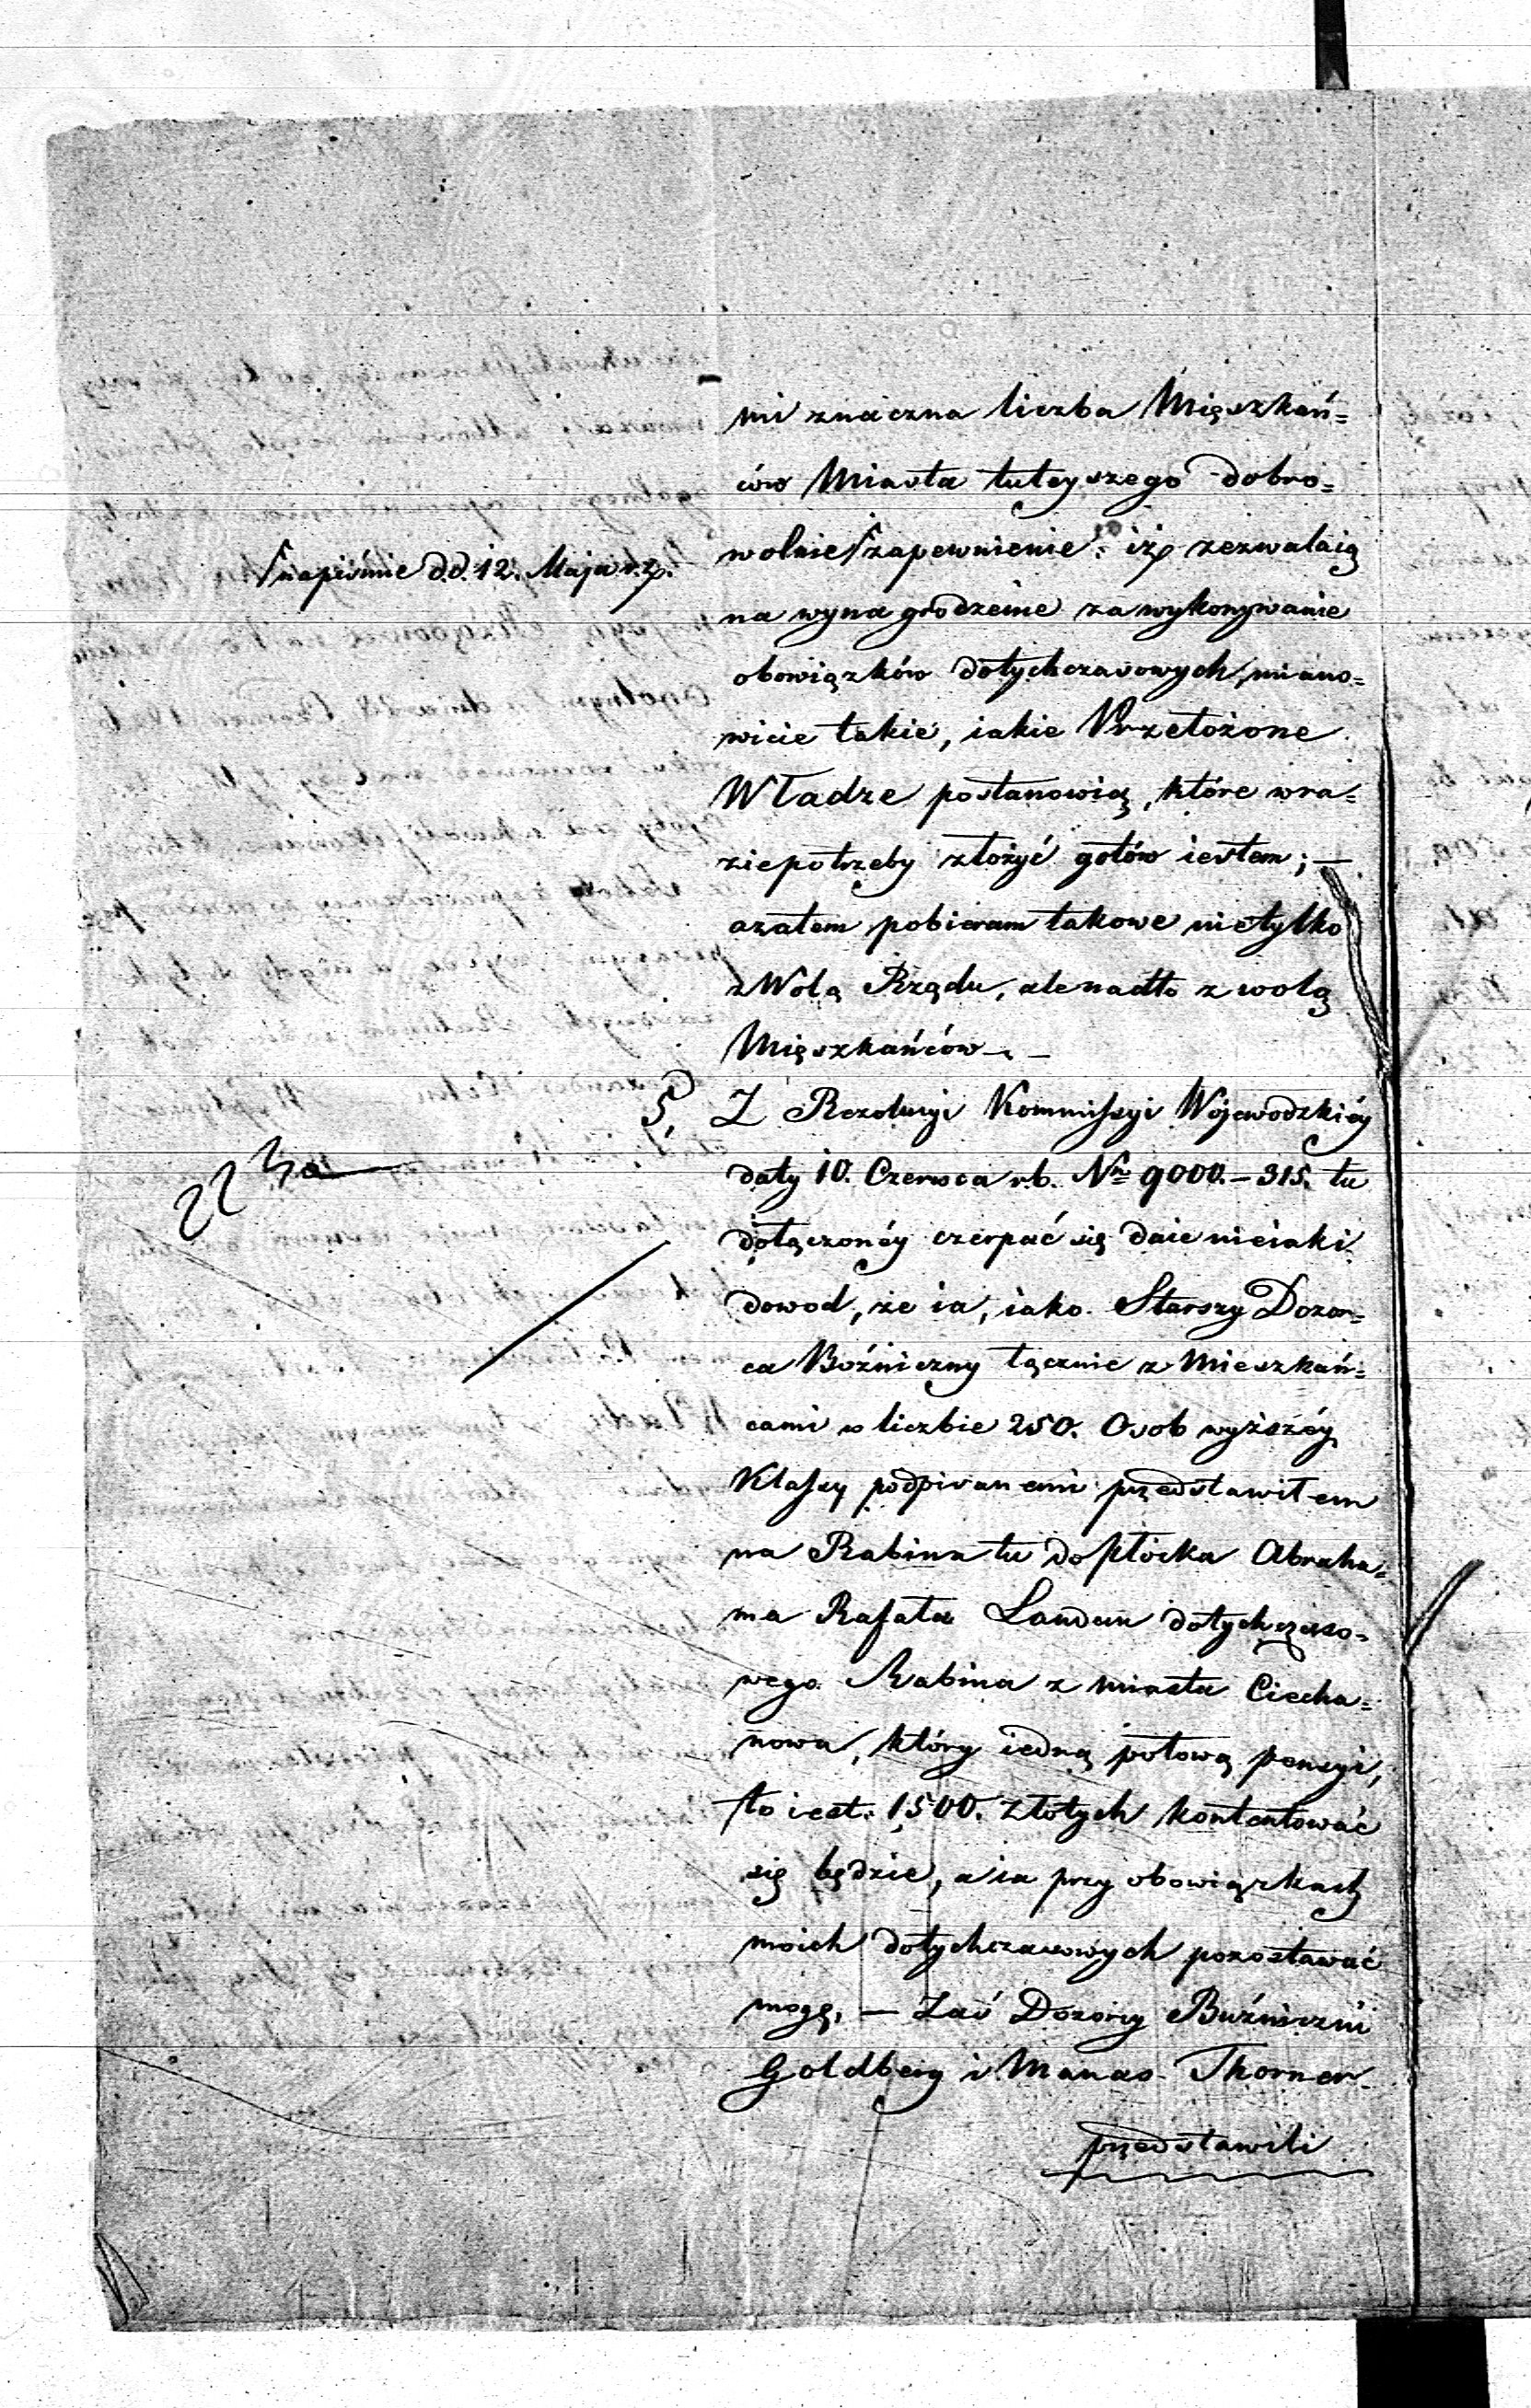 mi znaczna liczba Mięszkań=
ców Miasta tuteyszego dobro=
wolnie zapewnienie: iż zezwalaią
napiśmie d.d. 12. Maja r.z.
na wynagrodzenie za wykonywanie
obowiązków dotychczasowych, miano=
wicie takie, iakie Przełożone
Władze postanowią, które wra=
ziepotrzeby złożyć gotów iestem; —
azatem pobieram takowe nietylko
z Wolą Rządu, ale nadto z wolą
Mięszkańców. —
5. Z Rezolucyi Kommissyi Wojewodzkiéy
daty 10. Czerwca r.b. No 9000. – 315. tu
dołączonéy czerpać się daie nieiaki
dowod, że ia, iako Starszy Dozor=
ca Boźniczny łącznie z Mieszkań=
cami w liczbie 250. Osob wyższéy
Klassy podpisanemi przedstawiłem
na Rabina tu do Płocka Abraha=
ma Rafała Landau dotychczaso=
wego Rabina z miasta Ciecha=
nowa, który iedną połową pensyi,
to iest: 1500. Złotych kontentować
się będzie, a ia przy obowiązkach
moich dotychczasowych pozostawać
mogę, — Zaś Dozorcy Buźniczni
Goldberg i Manas Thorner
przedstawili